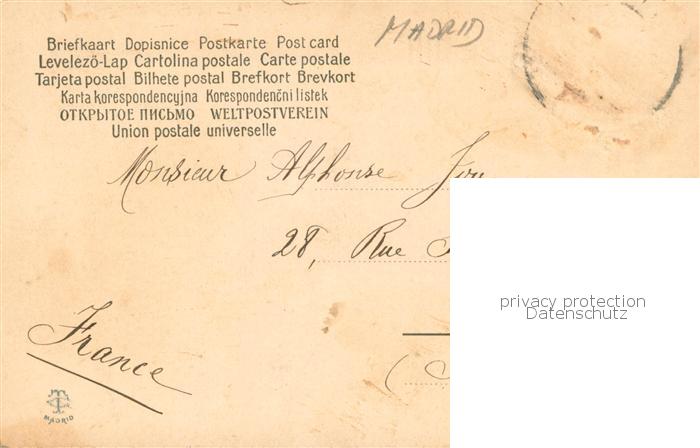 MADRID
Briefkaart Dopisnice Postkarte Post card
Levelező-Lap Cartolina postale Carte postale
Tarjeta postal Bilhete postal Brefkort Brevkort
Karta korespondencyjna Korespondenční listek
ОТКРЫТОЕ ПИСЬМО WELTPOSTVEREIN
Union postale universelle
Monsieur Alphonse
28, Rue
privacy protection
Datenschutz
France
MADRID